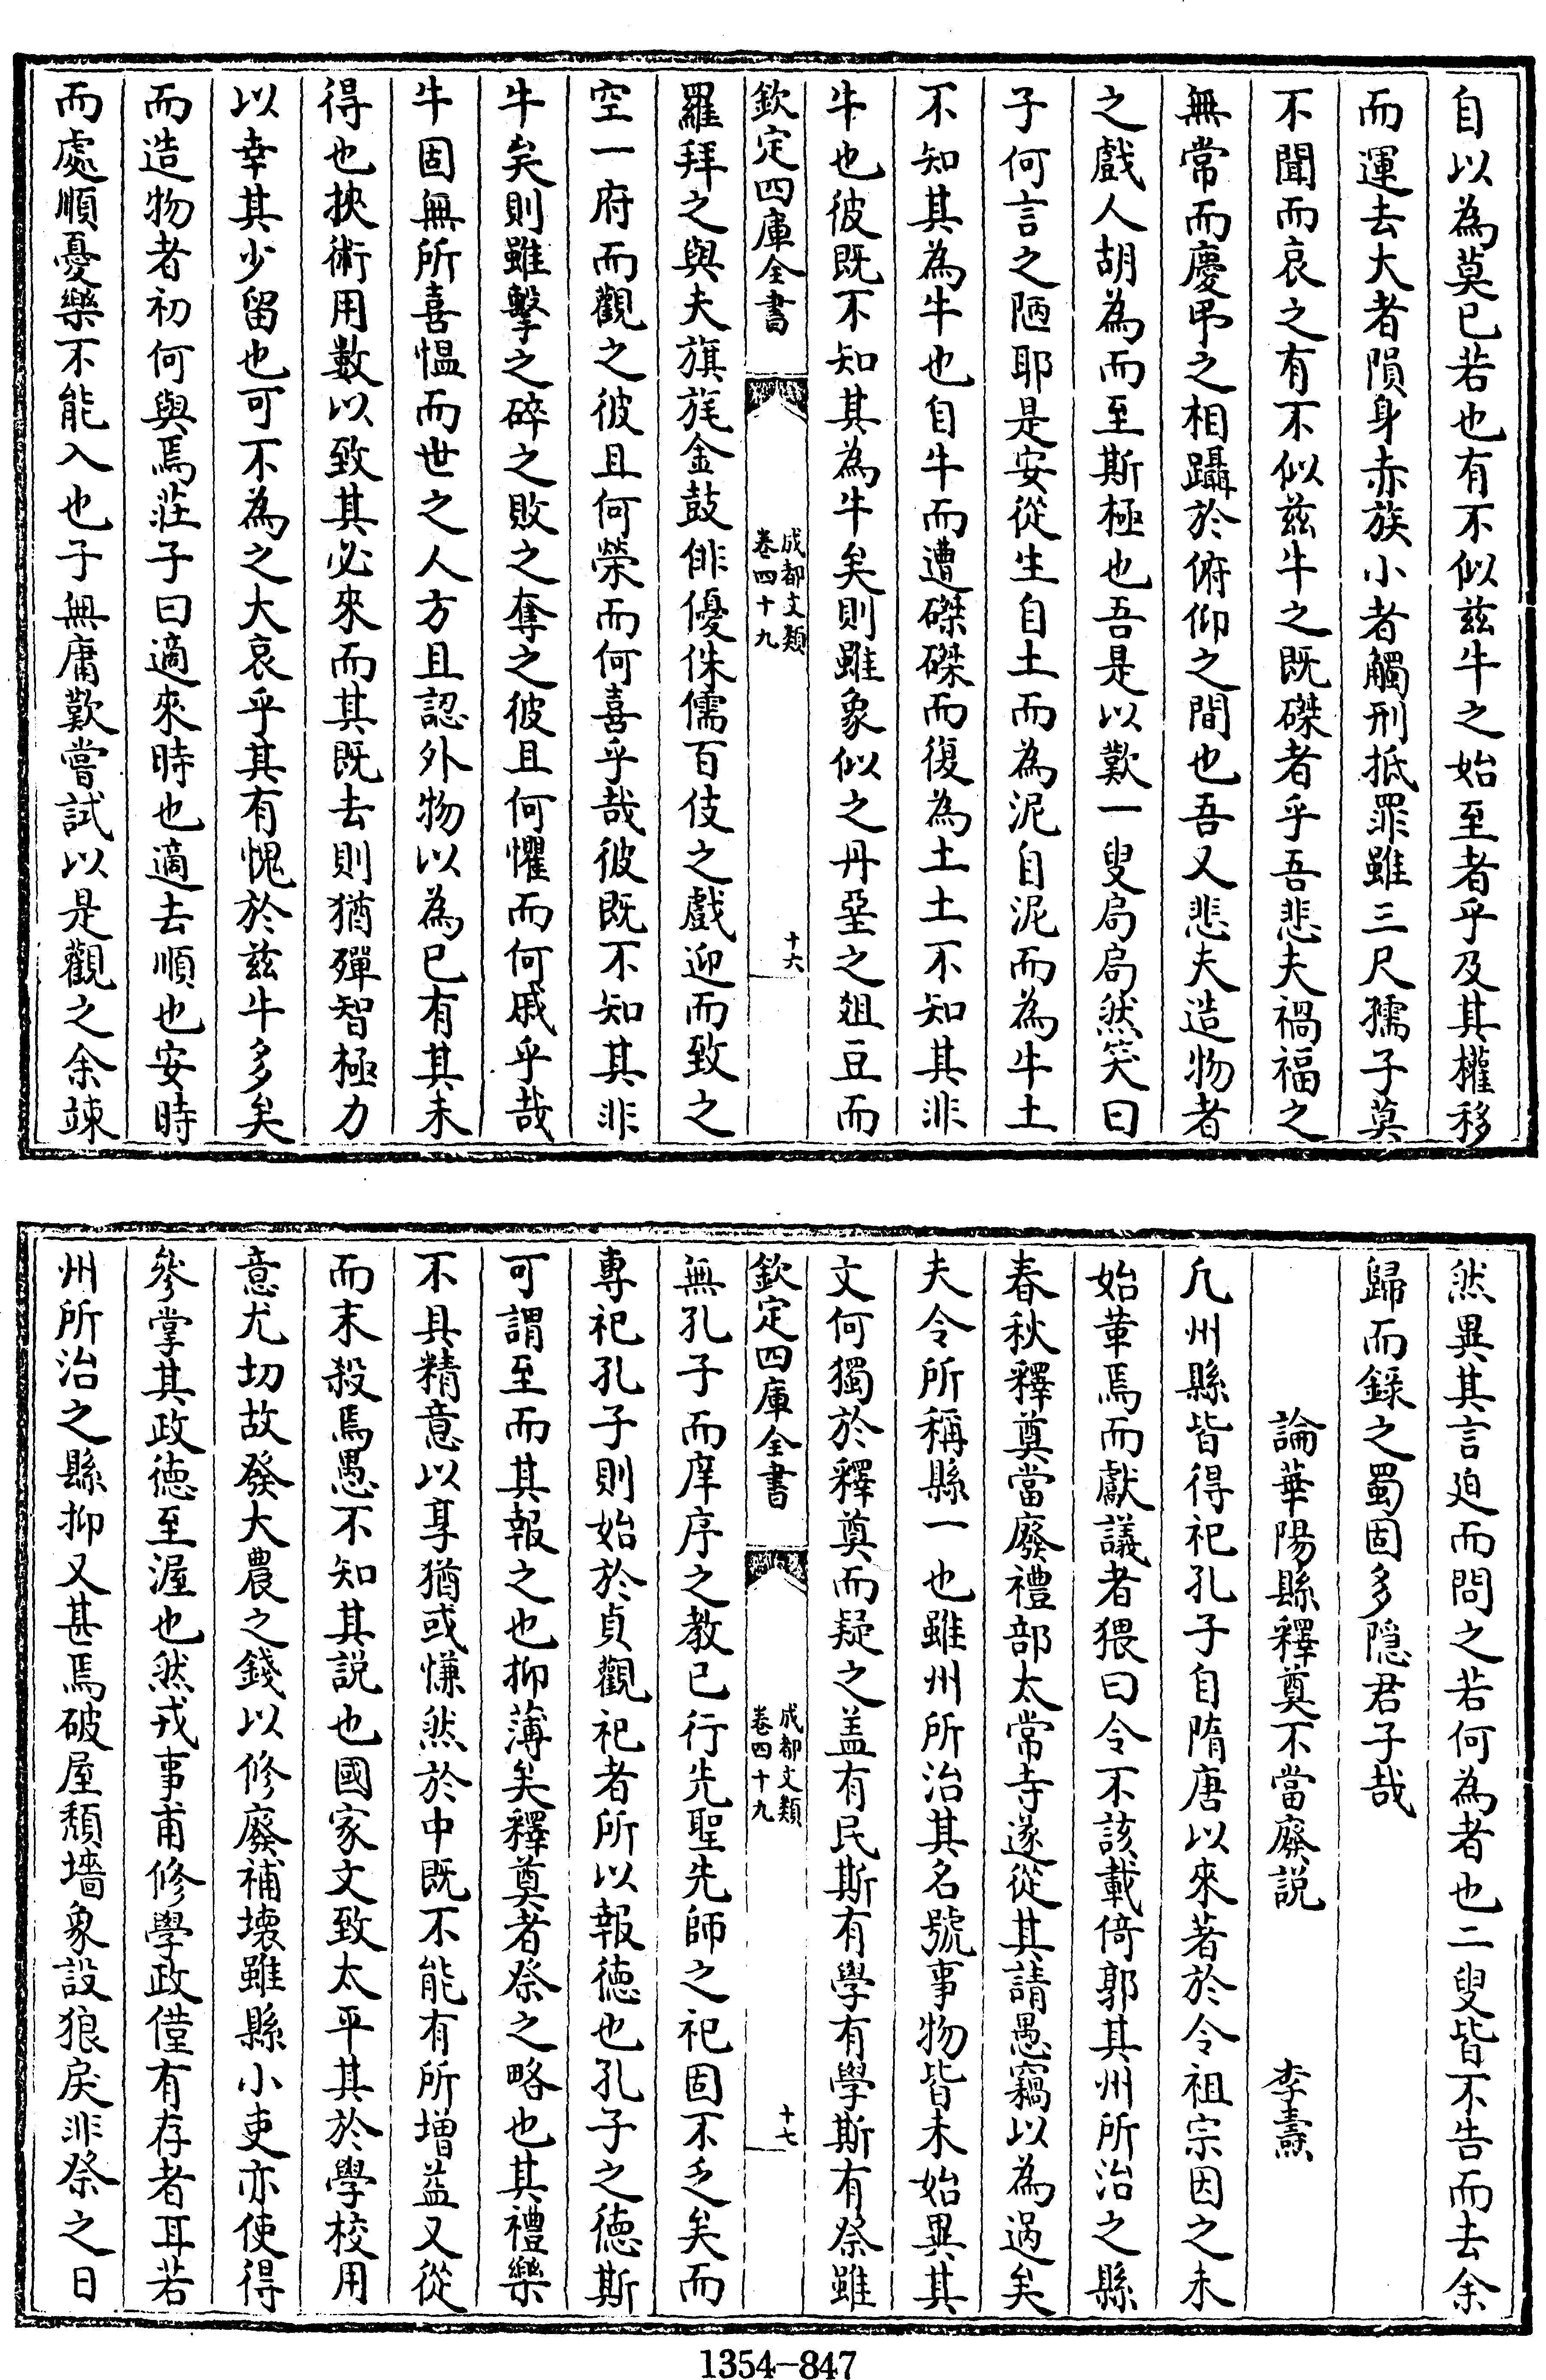 自以為莫已若也有不似兹牛之始至者乎及其權移
而運去大者隕身赤族小者觸刑抵罪雖三尺孺子莫
不聞而哀之有不似兹牛之既磔者乎吾悲夫禍福之
無常而慶弔之相躡於俯仰之間也吾又悲夫造物者
之戲人胡為而至斯極也吾是以歎一叟局局然笑曰
子何言之陋耶是安從生自土而為泥自泥而為牛土
不知其為牛也自牛而遭磔磔而復為土土不知其非
牛也彼既不知其為牛矣則雖象似之丹堊之爼豆而
欽定四庫全書
成都文類
卷四十九
十六
羅拜之與夫旗旄金鼓俳優侏儒百伎之戲迎而致之
空一府而觀之彼且何榮而何喜乎哉彼既不知其非
牛矣則雖擊之碎之敗之奪之彼且何懼而何戚乎哉
牛固無所喜愠而世之人方且認外物以為已有其未
得也挾術用數以致其必來而其既去則猶殫智極力
以幸其少留也可不為之大哀乎其有愧於兹牛多矣
而造物者初何與焉莊子曰適來時也適去順也安時
而處順憂樂不能入也子無庸歎嘗試以是觀之余竦
然異其言迫而問之若何為者也二叟皆不告而去余
歸而錄之蜀固多隐君子哉
論華陽縣釋奠不當廢説
李燾
凡州縣皆得祀孔子自隋唐以來著於令祖宗因之未
始革焉而獻議者猥曰令不該載倚郭其州所治之縣
春秋釋奠當廢禮部太常寺遂從其請愚竊以為過矣
夫令所稱縣一也雖州所治其名號事物皆未始異其
文何獨於釋奠而疑之盖有民斯有學有學斯有祭雖
欽定四庫全書
成都文類
卷四十九
十七
無孔子而庠序之教已行先聖先師之祀固不乏矣而
專祀孔子則始於貞觀祀者所以報徳也孔子之徳斯
可謂至而其報之也抑薄矣釋奠者祭之略也其禮樂
不具精意以享猶或慊然於中既不能有所增益又從
而末殺焉愚不知其説也國家文致太平其於學校用
意尤切故發大農之錢以修廢補壊雖縣小吏亦使得
參掌其政徳至渥也然戎事甫修學政僅有存者耳若
州所治之縣抑又甚焉破屋頽墻象設狼戾非祭之日
1354-847